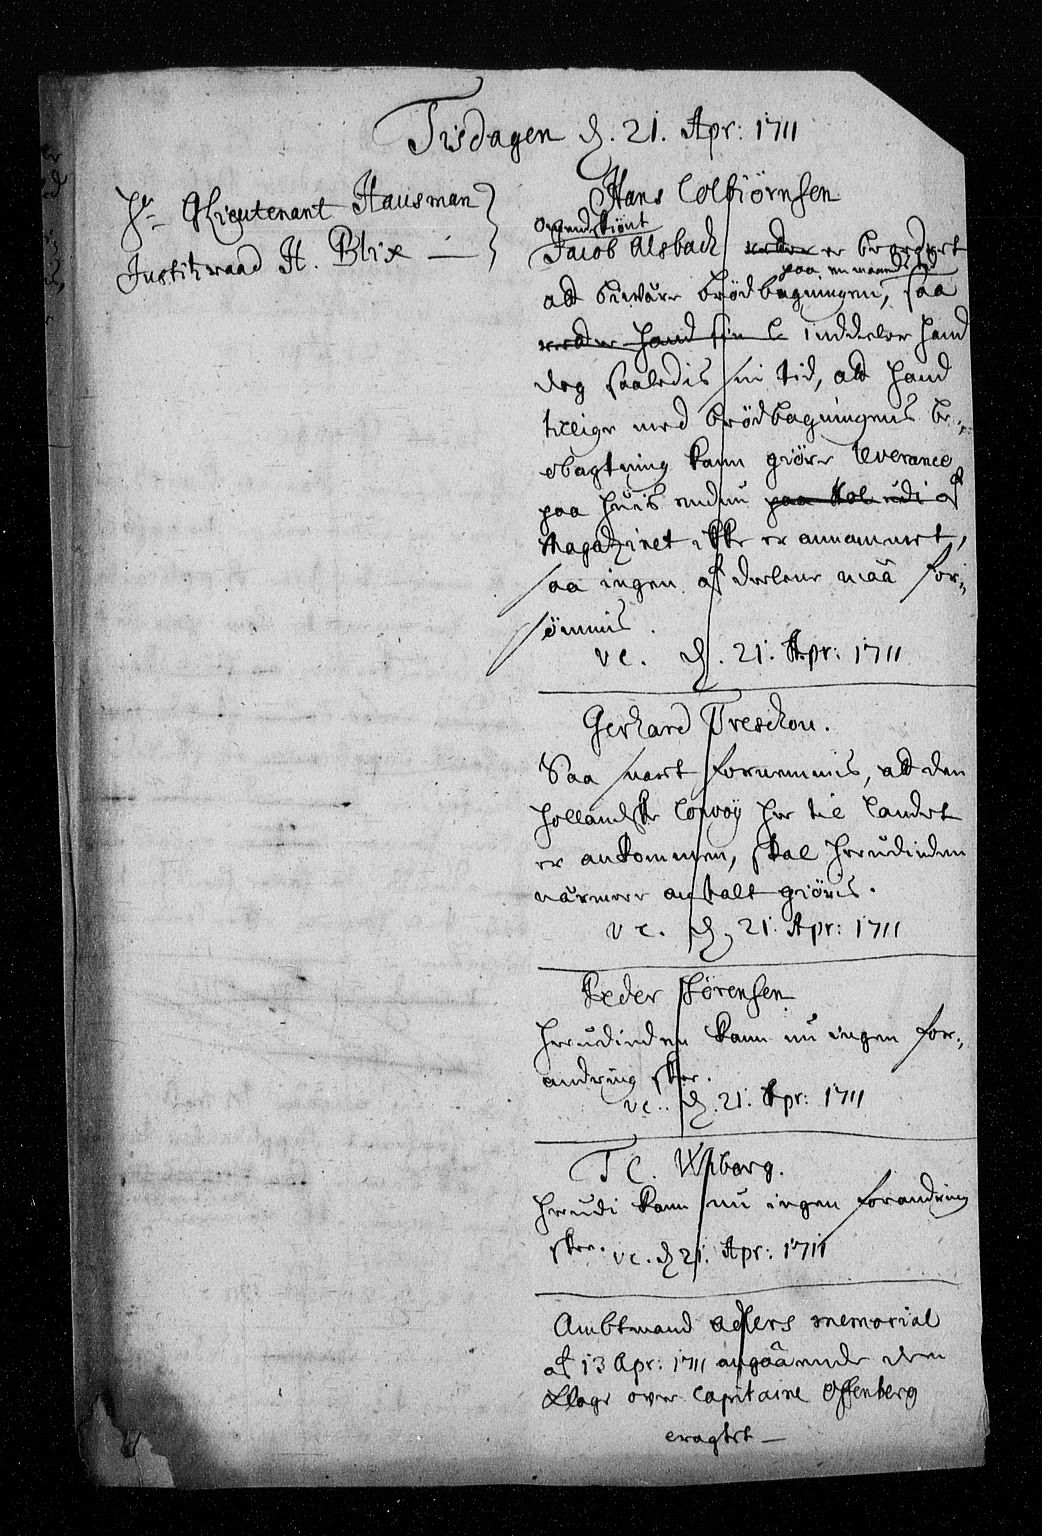 Tisdagen d. 21. Apr: 1711
Hr GLieutenant Hausman
Justitzraad H. Blix —
Hans Colbiørnsen
Omendskiønt
Jacob Alsbach er beordret
paa en maaneds tid
att bivære brødbagningen, saa
inddeler hand
dog saaledis sin tid, att hand
tillige med brødbagningens be„
obagtning kann giøre leverance
paa huis endnu paa Kol udi af
Magazinet ikke er annammet,
saa ingen af deelene maa for„
sømmis.
vc. d. 21. Apr: 1711
Gerhard Treschou.
Saa snart fornemmis, att den
hollandske Convoy her til landet
er ankommen, skal herudinden
nærmere anstalt giøris.
vc. d. 21. Apr: 1711
Peder Sørensen
herudinden kann nu ingen for„
andring skee.
vc. d. 21. Apr: 1711
T C. Wiborg.
herudi kann nu ingen forandring
skee. vc. d 21. Apr: 1711
Ambtmand Adlers memorial
af 13 Apr: 1711 angaaende den
Klage over Capitaine Offenberg
eragtet —